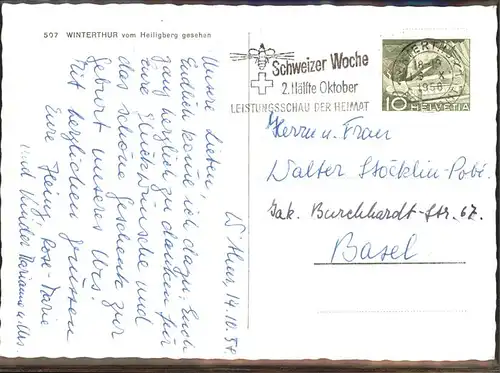 507 WINTERTHUR vom Heiligberg gesehen
W'thur, 14.10.58.
Unsere Lieben,
Endlich komme ich dazu, Euch
ganz herzlich zu danken für
Eure Glückwünsche und
das schöne Geschenk zur
Geburt unseres Urs.
Mit herzlichen Grüssen
Eure Heinz, Rose-Marie
und Kinder Marianne u. Urs.
Schweizer Woche
2. Hälfte Oktober
LEISTUNGSSCHAU DER HEIMAT
WINTERTHUR
18-19
X
1958
10 HELVETIA
Herrn u. Frau
Walter Stöcklin-Pobé.
Jak. Burckhardt-Str. 67.
Basel